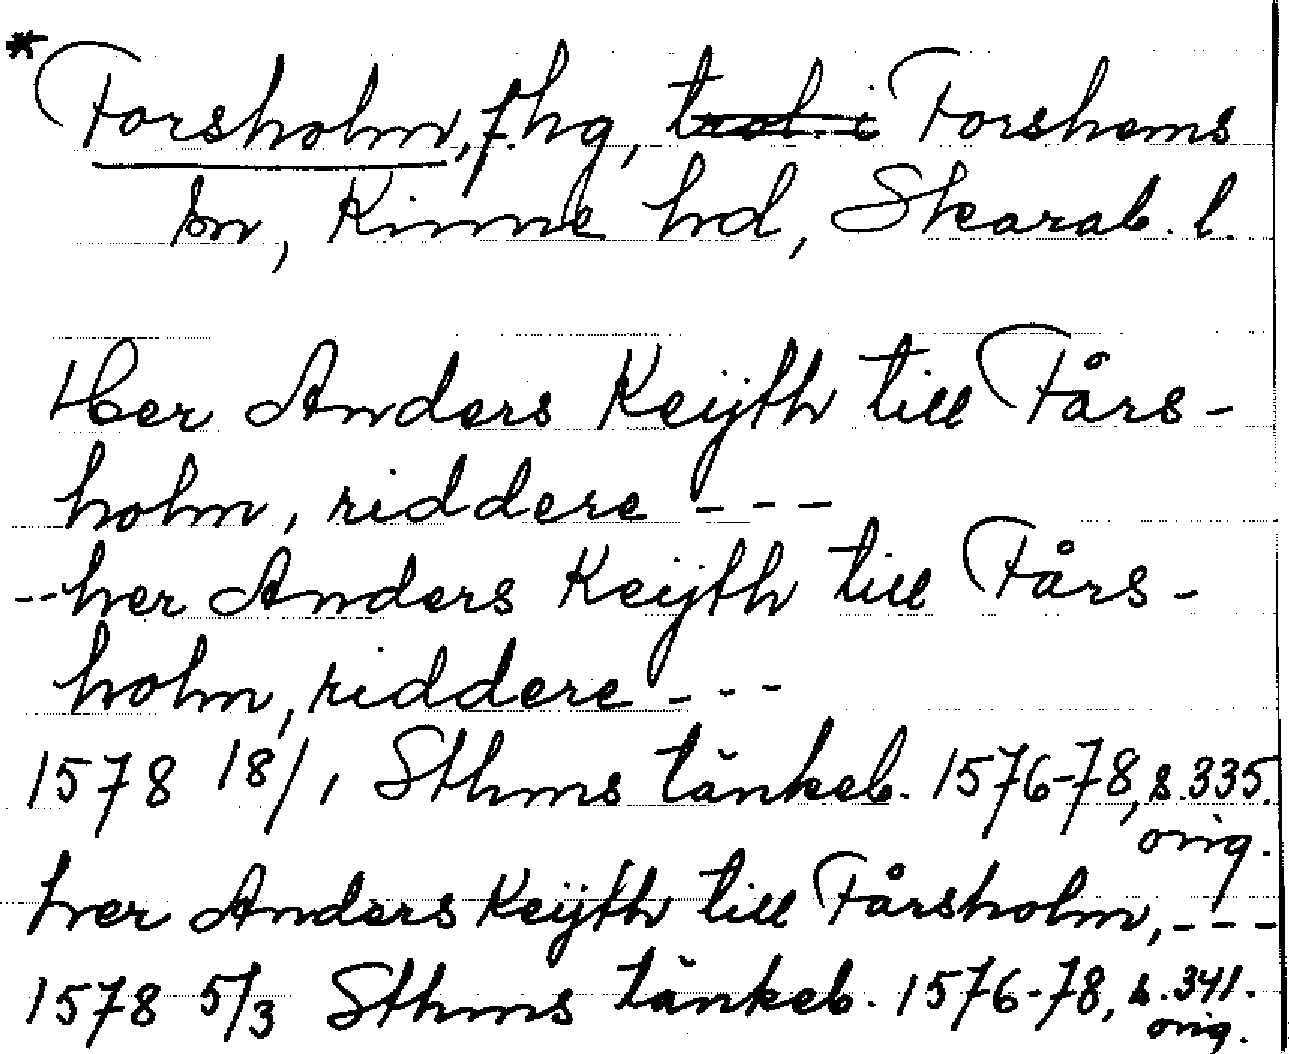 *Forsholm, f. hg, trol. i Forshems
sn, Kinne hd, Skarab. l.
Her Anders Keijth till Fårs-
holm, riddere - - -
--her Anders Keijth till Fårs-
holm, riddere - - -
1578 18/1 Sthms tänkeb. 1576-78, s. 335.
orig.
her Anders Keijth till Fårsholm, - - -
1578 5/3 Sthms tänkeb. 1576-78, s. 341.
orig.